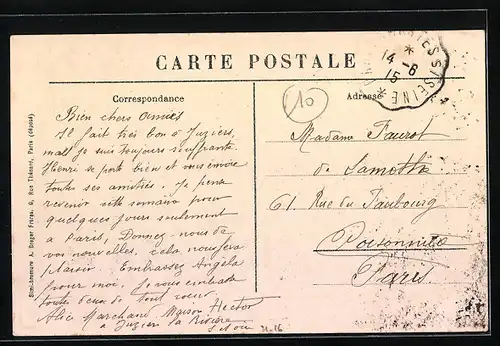 CARTE POSTALE
Correspondance
Adresse
10
14 - 8
15
Bien chers amies
Il fait très bon à Juziers,
mall je suis toujours souffrante.
Henri se porte bien et vous envoie
toutes ses amitiés. Je pense
revenir cette semaine pour
quelques jours seulement
a Paris, Donnez nous de
vos nouvelles, cela nous fera
plaisir. Embrassez Angèle
pour moi. Je vous embrasse
toutes deux de tout coeur
Alice Marchand Maison Hector
a Juziers la Rivière
S. et Oise
Madame Faurot
de Lamothe
61 Rue du Faubourg
Poissonnière
Paris
Simi-Bromure A. Breger Frères, 9, Rue Thénard, Paris (déposé)